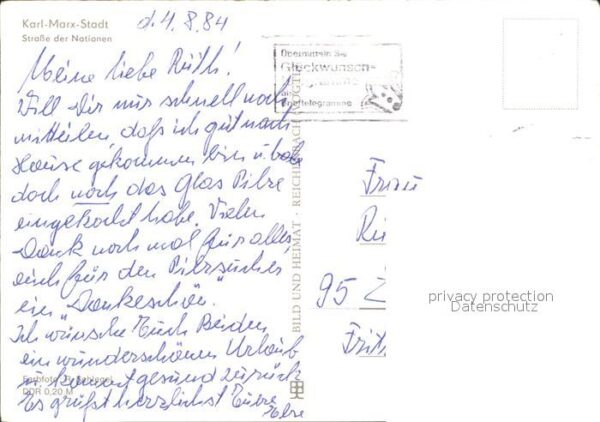 Karl-Marx-Stadt
Straße der Nationen
d. 4. 8. 84
Übermitteln Sie
Glückwunsch-
als
telegramme
Meine liebe Ruth!
Will Dir nur schnell noch
mitteilen daß ich gut nach
Hause gekommen bin u. habe
doch noch das Glas Pilze
eingekocht habe. Vielen
Dank noch mal für alles,
auch für den Pilzsucher
ein "Dankeschön".
Ich wünsche Euch Beiden
ein wunderschönen Urlaub
u. kommt gesund zurück
Es grüßt herzlichst Eure
Farbfoto:
DDR 0,20 M
BILD UND HEIMAT · REICHENBACH
Frau
95
privacy protection
Datenschutz